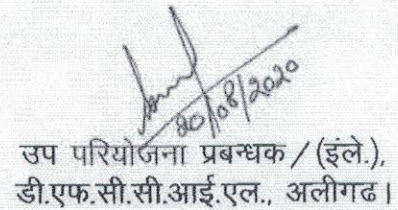 20/08/2020
उप परियोजना प्रबन्धक / (इंले.),
डी.एफ.सी.सी.आई.एल., अलीगढ।